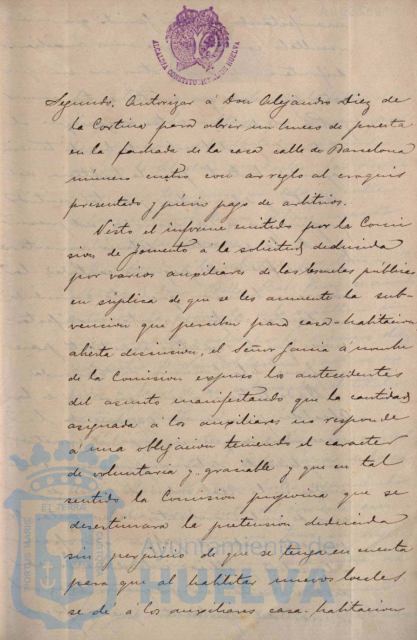 ALCALDIA CONSTITUCIONAL DE HUELVA
Segundo. Autorizar á Don Alejandro Diez de
la Cortina para abrir un hueco de puerta
en la fachada de la casa calle de Barcelona
número cuatro con arreglo al croquis
presentado y prévio pago de arbitrios.
Visto el informe emitido por la Comi
sion de Fomento á la solicitud deducida
por varios auxiliares de las Escuelas públicas
en súplica de que se les aumente la sub-
vencion que perciben para casa-habitacion
abierta discusion, el Señor Garcia á nombre
de la Comision expuso los antecedentes
del asunto manifestando que la cantidad
asignada á los auxiliares no responde
á una obligacion teniendo el caracter
de voluntaria y graciable y que en tal
sentido la Comision proponia que se
desestimara la pretension deducida
sin perjuicio de que se tenga en cuenta
para que al habilitar nuevos locales
se dé á los auxiliares casa-habitacion
PORTUS MARIS
ET TERRAE
CUSTODIA
Ayuntamiento de
HUELVA